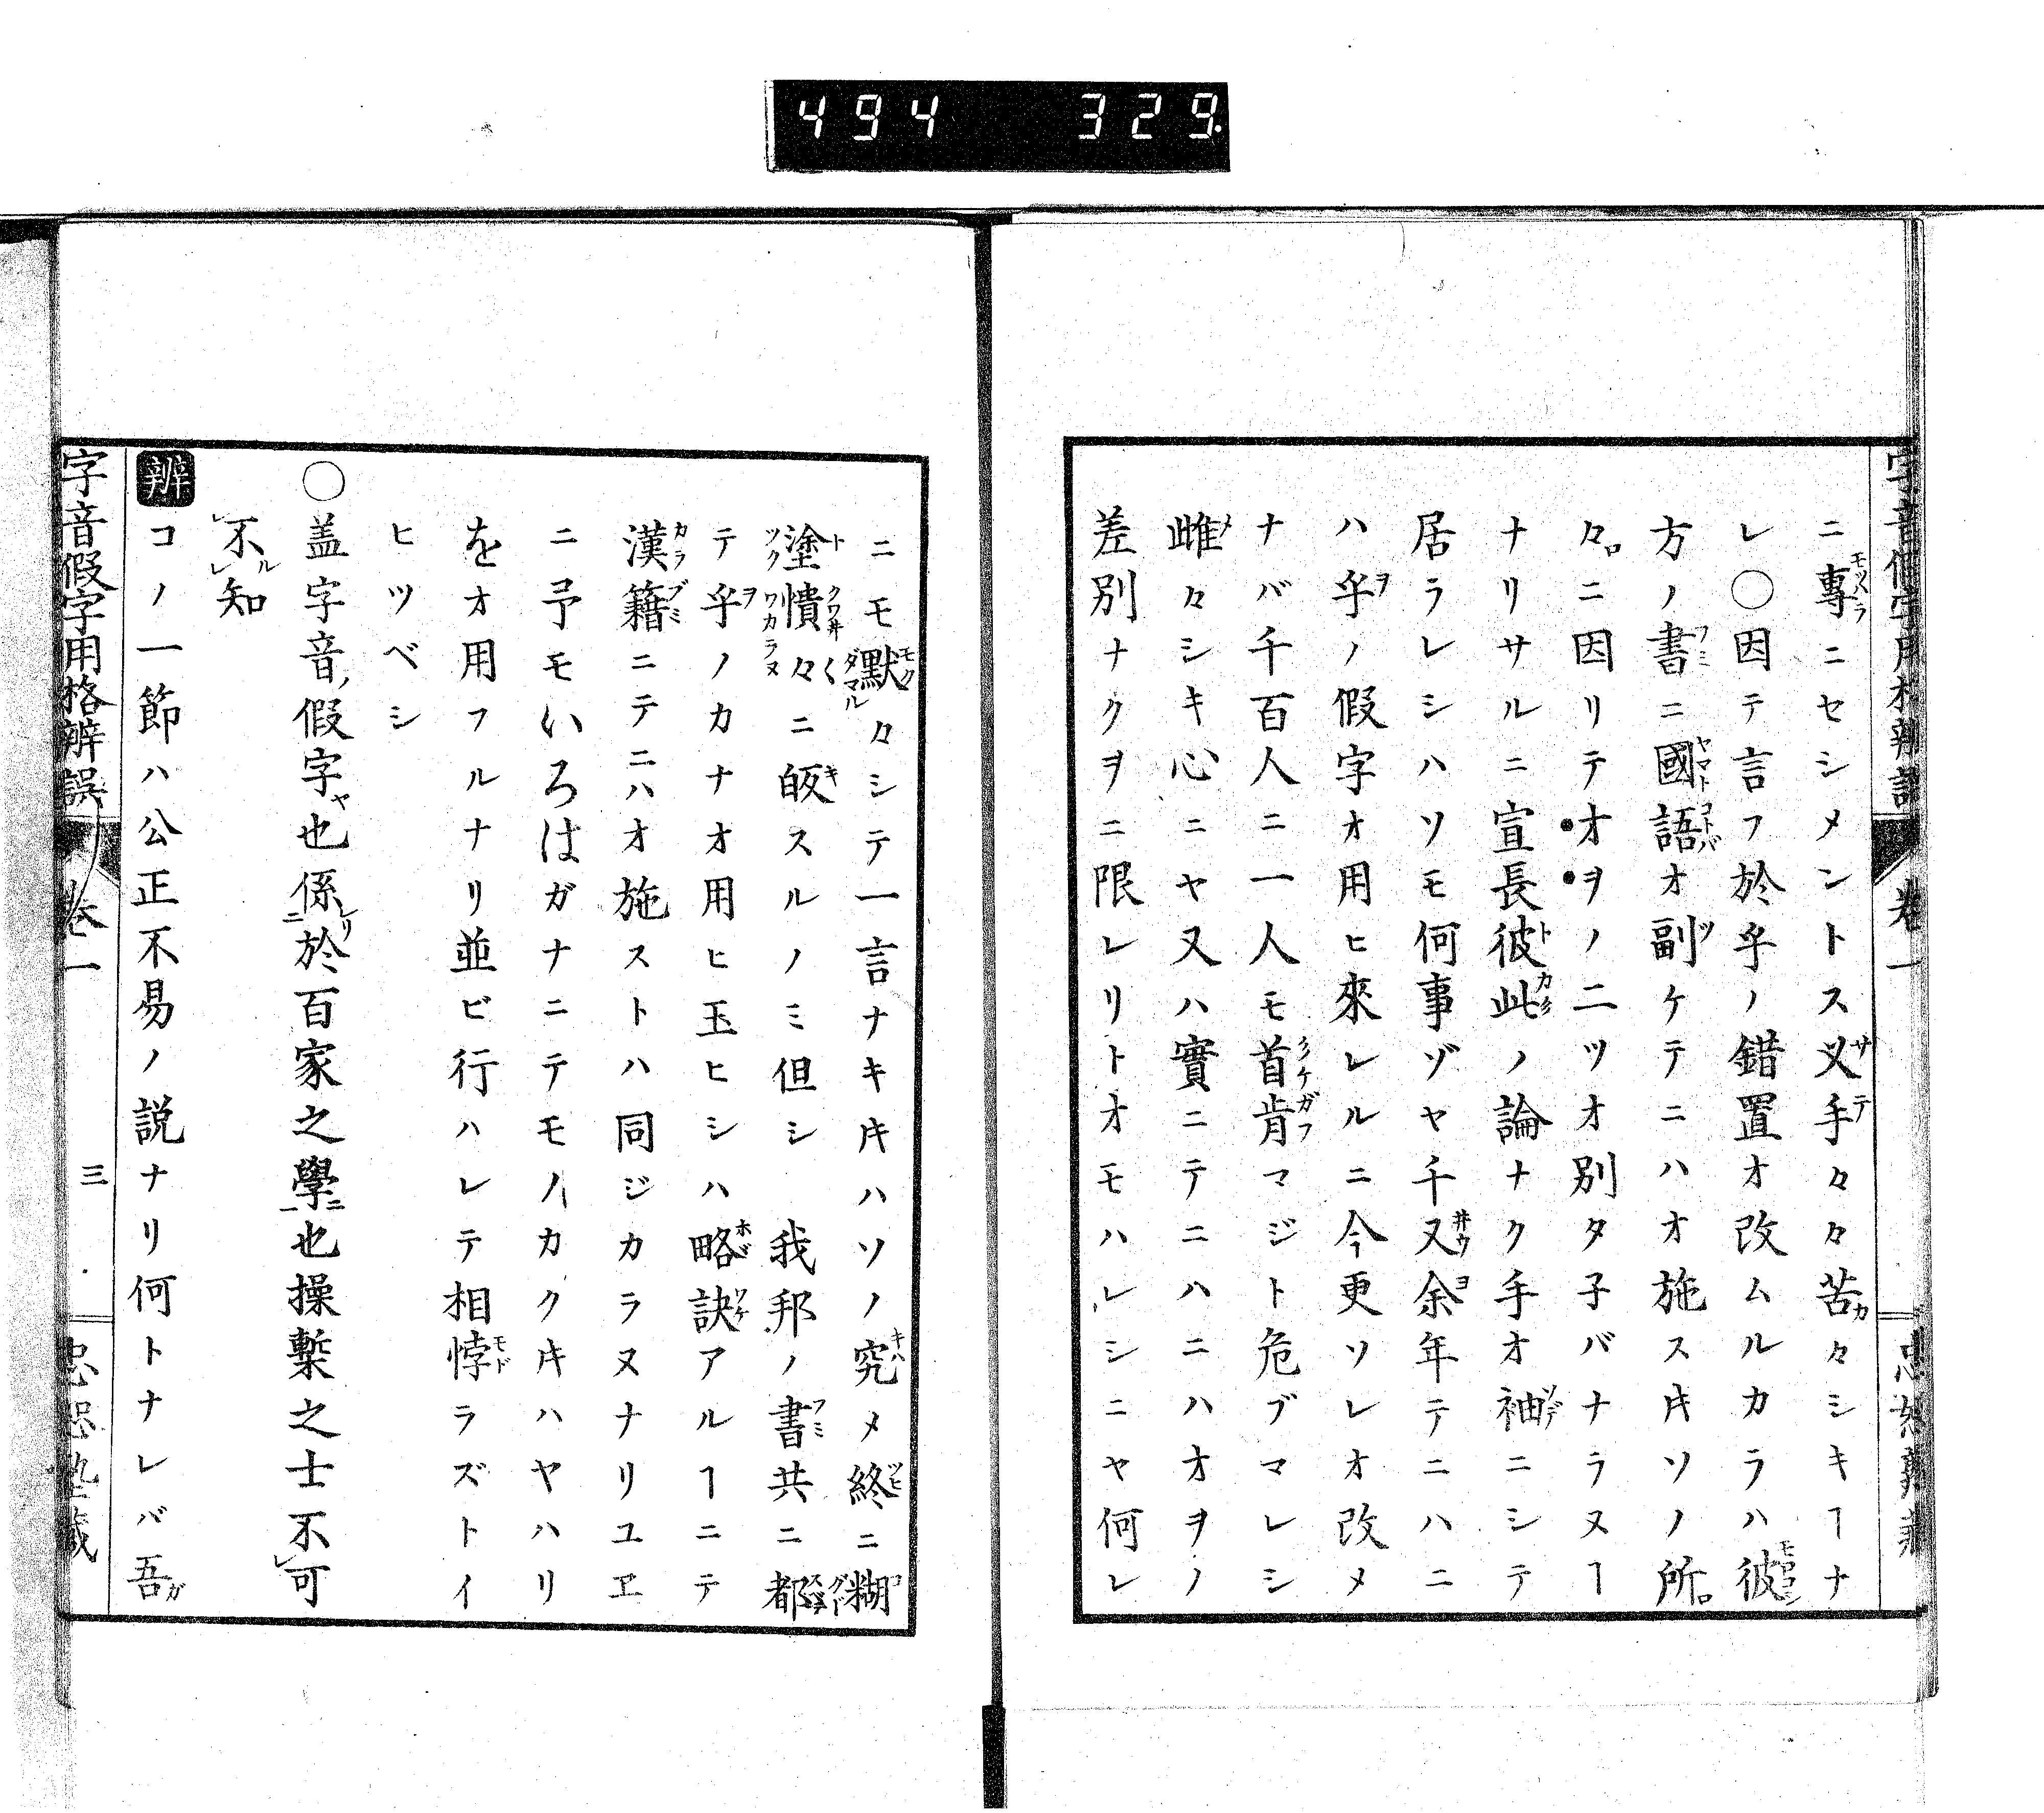 494 329.
字音假字用格辨誤 卷一 忠恕塾藏
ニ專ニセシメントス叉手々々苦々シキヿナ
レ〇因テ言フ於乎ノ錯置オ改ムルカラハ彼
方ノ書ニ國語オ副ケテニハオ施スキソノ所
々ニ因リテオヲノ二ツオ別タ子バナラヌヿ
ナリサルニ宣長彼此ノ論ナク手オ袖ニシテ
居ラレシハソモ何事ゾヤ千又余年テニハニ
ハ乎ノ假字オ用ヒ來レルニ今更ソレオ改メ
ナバ千百人ニ一人モ首肯マジト危ブマレシ
雌々シキ心ニヤ又ハ實ニテニハニハオヲノ
差別ナクヲニ限レリトオモハレシニヤ何レ
ニモ默々シテ一言ナキキハソノ究メ終ニ糊
塗憒々ニ皈スルノミ但シ 我邦ノ書共ニ都
テ乎ノカナオ用ヒ玉ヒシハ略訣アルヿニテ
漢籍ニテニハオ施ストハ同ジカラヌナリユヱ
ニ予モいろはガナニテモノカクキハヤハリ
をオ用フルナリ並ビ行ハレテ相悖ラズトイ
ヒツベシ
〇盖字音假字也係於百家之學也操槧之士不可
不知
辨 コノ一節ハ公正不易ノ説ナリ何トナレバ吾
字音假字用格辨誤 卷一 三 忠恕塾藏